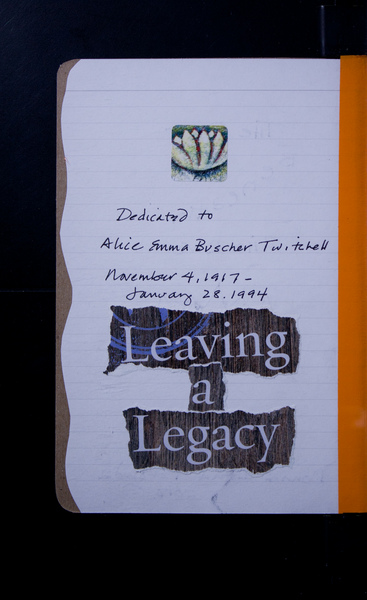 Dedicated to
Alice Emma Buscher Twitchell
November 4, 1917 –
January 28. 1994
Leaving
a
Legacy